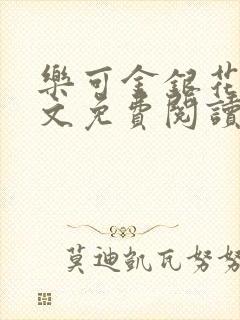 樂可金銀花
文免費閱讀
莫迪凱瓦努努